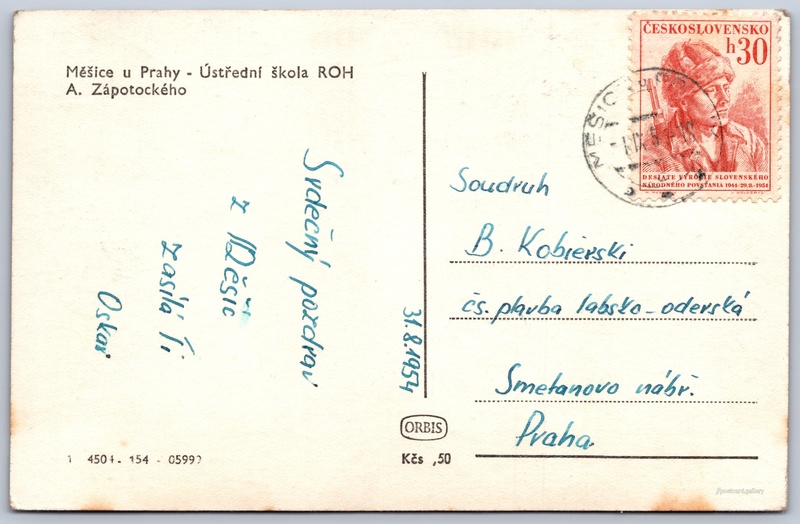 Měšice u Prahy - Ústřední škola ROH
A. Zápotockého
Srdečný pozdrav
z Měšic
zasílá Ti
Oskar
31.8.1954
ČESKOSLOVENSKO
h 30
DESÁTÉ VÝROČIE SLOVENSKÉHO
NÁRODNÉHO POVSTANIA 1944-29.8.-1954
Soudruh
B. Kobierski
čs. plavba labsko-oderská
Smetanovo nábř.
Praha
ORBIS
Kčs ,50
154 - 05992
jfpostcard.gallery